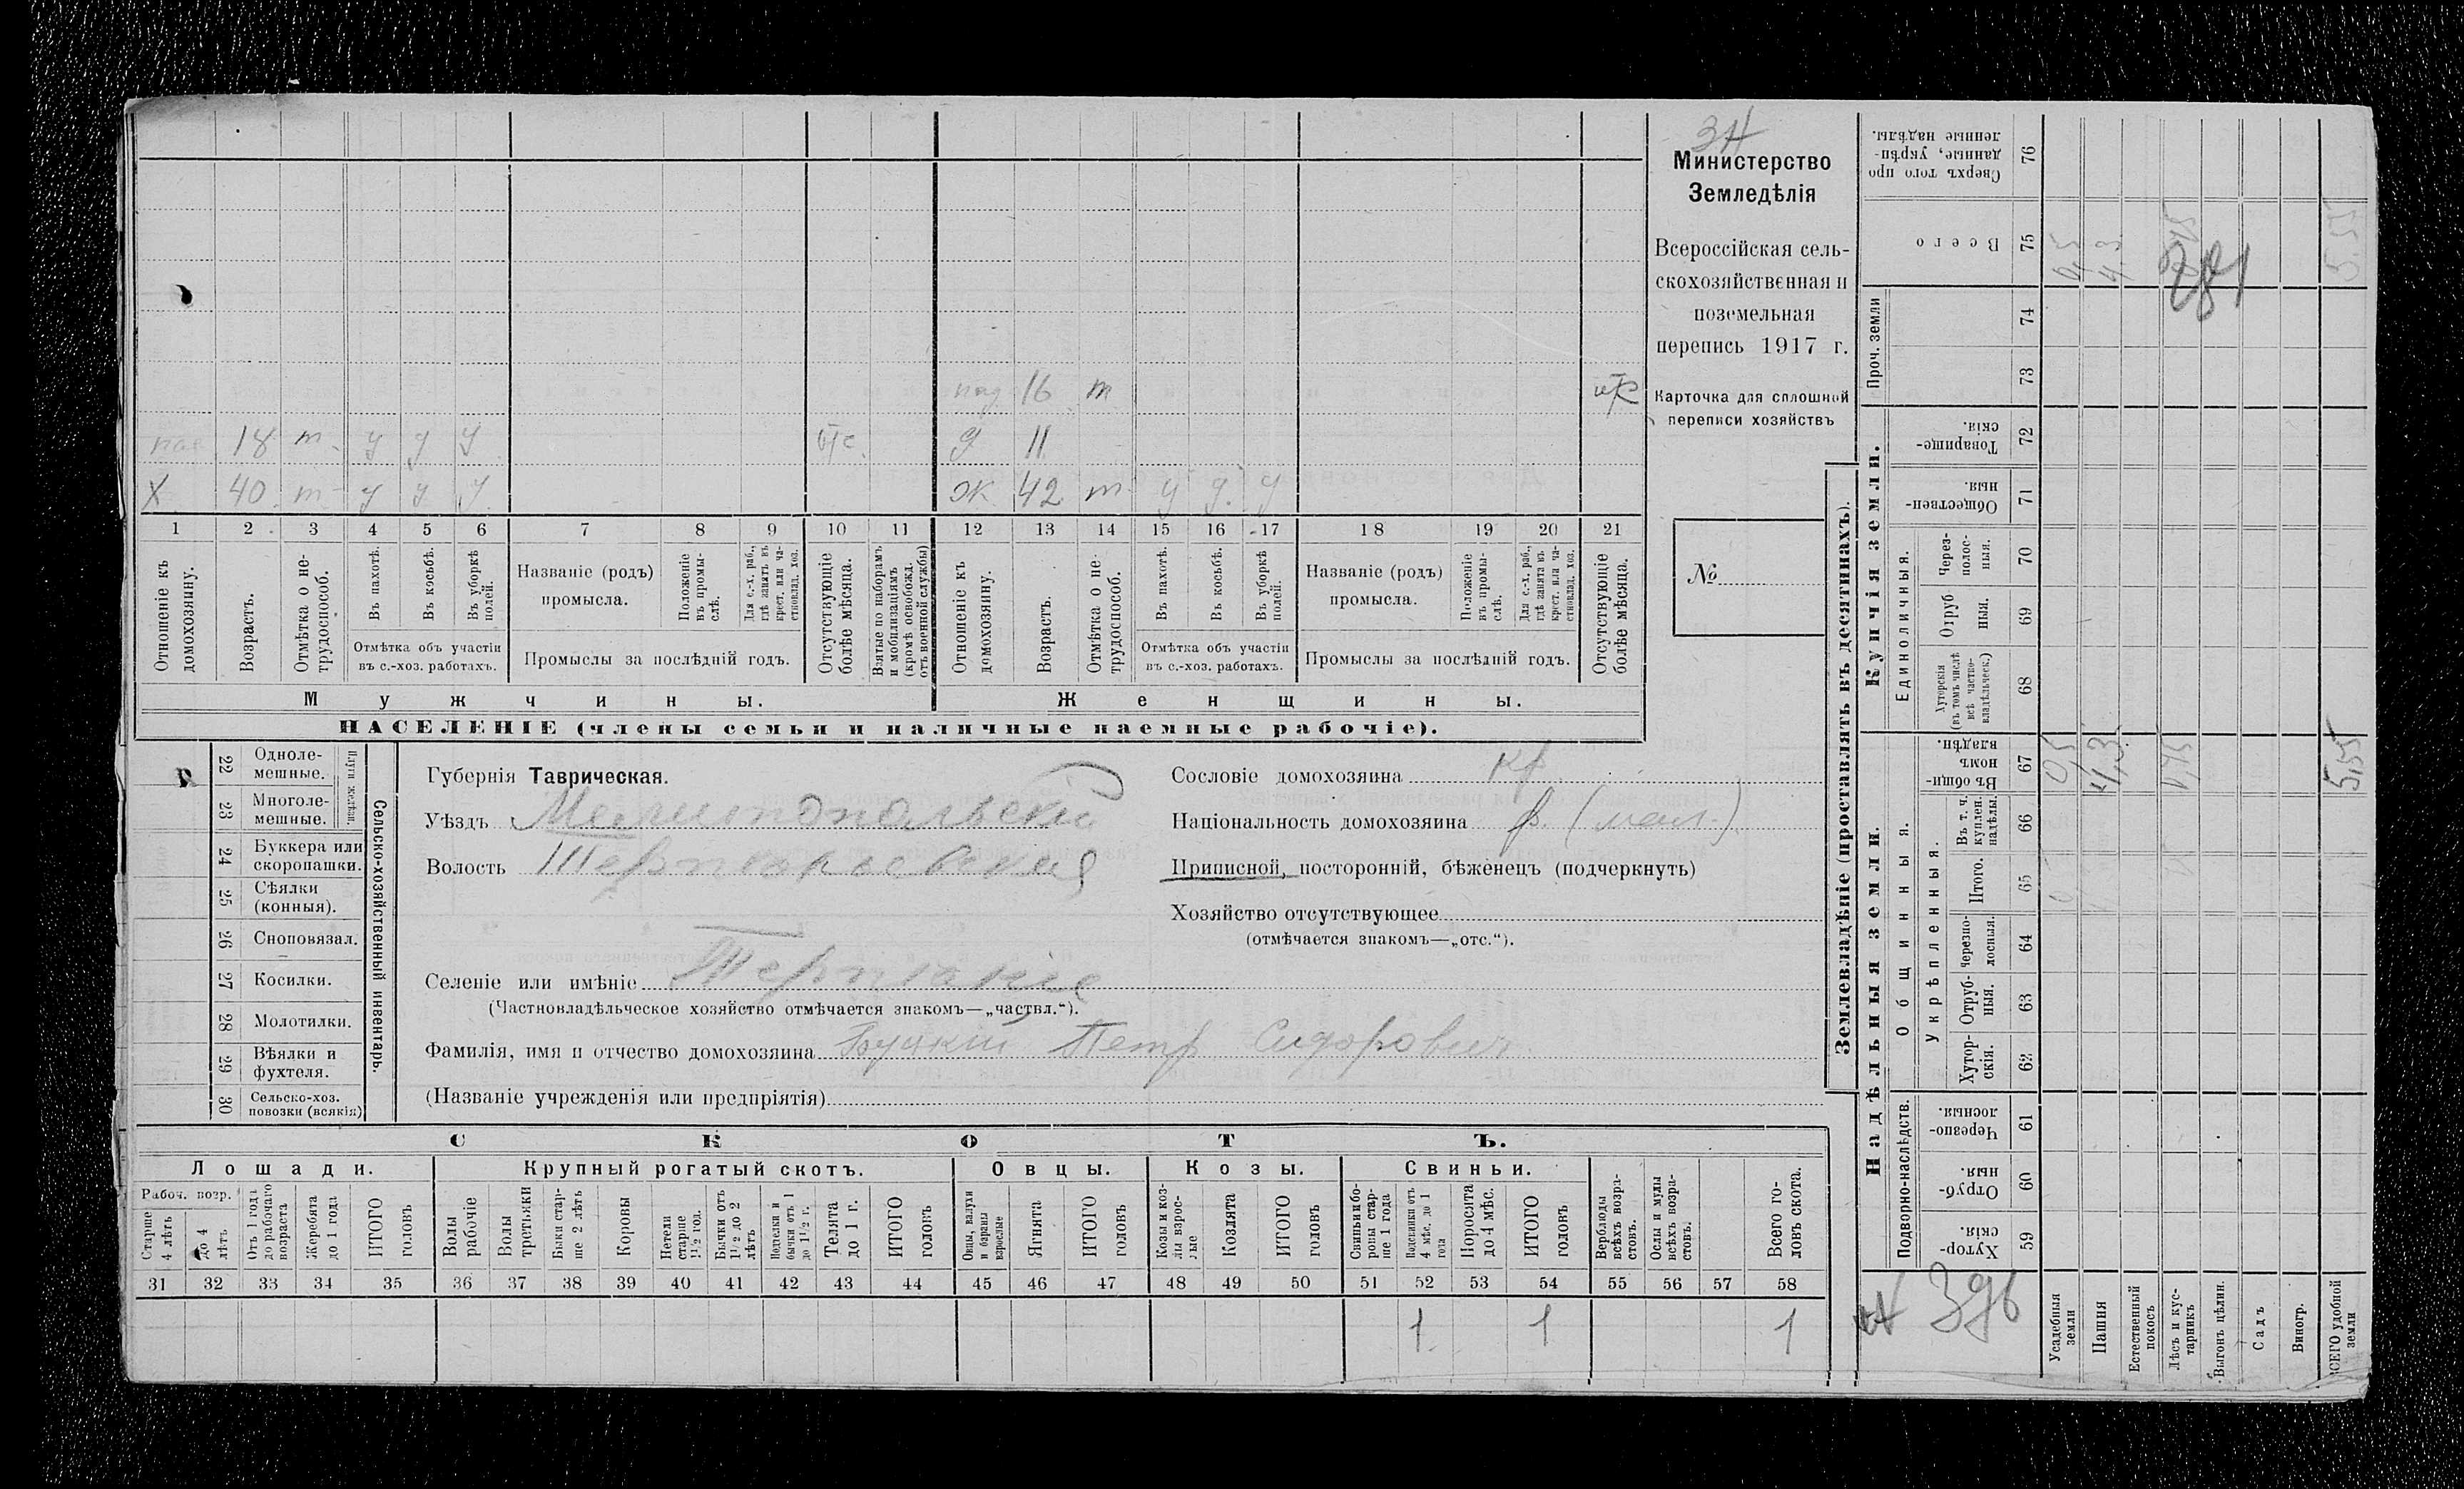 пад 16 т
пас 18 т у у у отс. д 11
Х 40 т у у у ж 42 т у у у
1 2 3 4 5 6 7 8 9 10 11 12 13 14 15 16 17 18 19 20 21
Отношеніе къ домохозяину.
Возрастъ.
Отмѣтка о не-трудоспособ.
Въ пахотѣ.
Въ косьбѣ.
Въ уборкѣ полей.
Отмѣтка объ участіи
въ с.-хоз. работахъ.
Названіе (родъ)
промысла.
Положеніе въ промы-слѣ.
Для с.-х. раб., гдѣ занятъ въ крест. или ча-стновлад. хоз.
Промыслы за послѣдній годъ.
Отсутствующіе болѣе мѣсяца.
Взятые по наборамъ и мобилизаціямъ (кромѣ освобожд. отъ военной службы)
Отношеніе къ домохозяину.
Возрастъ.
Отмѣтка о не-трудоспособ.
Въ пахотѣ.
Въ косьбѣ.
Въ уборкѣ полей.
Отмѣтка объ участіи
въ с.-хоз. работахъ.
Названіе (родъ)
промысла.
Положеніе въ промы-слѣ.
Для с.-х. раб., гдѣ занята въ крест. или ча-стновлад. хоз.
Промыслы за послѣдній годъ.
Отсутствующіе болѣе мѣсяца.
Мужчины. Женщины.
НАСЕЛЕНІЕ (члены семьи и наличные наемные рабочіе).
Министерство
Земледѣлія
Всероссійская сель-
скохозяйственная и
поземельная
перепись 1917 г.
Карточка для сплошной
переписи хозяйствъ
№
22 Одноле-мешные.
23 Многоле-мешные.
Плуги желѣзн.
24 Буккера или скоропашки.
25 Сѣялки (конныя).
26 Сноповязал.
27 Косилки.
28 Молотилки.
29 Вѣялки и фухтеля.
30 Сельско-хоз. повозки (всякія)
Сельско-хозяйственный инвентарь.
Губернія Таврическая.
Уѣздъ Мелитопольскій
Волость Терпеньевская
Селеніе или имѣніе Терпеніе
(Частновладѣльческое хозяйство отмѣчается знакомъ—„частвл.“).
Фамилія, имя и отчество домохозяина Буцкій Петр Сидорович
(Названіе учрежденія или предпріятія)
Сословіе домохозяина кр
Національность домохозяина р. (мал.)
Приписной, посторонній, бѣженецъ (подчеркнуть)
Хозяйство отсутствующее
(отмѣчается знакомъ—„отс.“).
СКОТЪ.
Лошади. Крупный рогатый скотъ. Овцы. Козы. Свиньи.
Рабоч. возр.
Старше 4 лѣтъ
до 4 лѣтъ
Отъ 1 года до рабочаго возраста
Жеребята до 1 года
ИТОГО головъ
Волы рабочіе
Волы третьяки
Быки стар-ше 2 лѣтъ
Коровы
Нетели старше 1½ год.
Бычки отъ 1½ до 2 лѣтъ
Подтелки и бычки отъ 1 до 1½ г.
Телята до 1 г.
ИТОГО головъ
Овцы, валухи и бараны взрослые
Ягнята
ИТОГО головъ
Козы и коз-лы взрос-лые
Козлята
ИТОГО головъ
Свиньи и бо-ровы стар-ше 1 года
Подсвинки отъ 4 мѣс. до 1 года
Поросята до 4 мѣс.
ИТОГО головъ
Верблюды всѣхъ возра-стовъ.
Ослы и мулы всѣхъ возра-стовъ.
Всего го-ловъ скота.
31 32 33 34 35 36 37 38 39 40 41 42 43 44 45 46 47 48 49 50 51 52 53 54 55 56 57 58
1 1 1
Землевладѣніе (проставлять въ десятинахъ).
Купчія земли.
Надѣльныя земли.
Сверхъ того про данные, укрѣп-ленные надѣлы. 76
Всего 75
Проч. земли 74 73
281
Товарище-скія. 72
Обществен-ныя. 71
Единоличныя.
Через-полос-ныя. 70
Отруб ныя. 69
Хуторскія (въ томъ числѣ всѣ частно-владѣльческ.) 68
Общинныя.
Въ общи-номъ владѣн. 67 0,5 4,3 5,55
Укрѣпленныя.
Въ т. ч. куплен. надѣлы. 66
Итого. 65
Черезпо-лосныя. 64
Отруб-ныя. 63
Хутор-скія. 62
Подворно-наслѣдств.
Черезпо-лосныя. 61
Отруб-ныя. 60
Хутор-скія. 59
396
Усадебныя земли
Пашня
Естественный покосъ
Лѣсъ и кус-тарникъ
Выгонъ цѣлин.
Садъ
Виногр.
ВСЕГО удобной земли